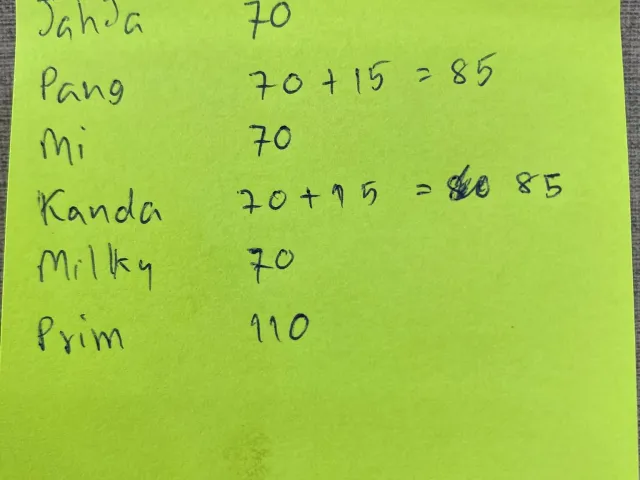 JahJa 70
Pang 70 + 15 = 85
Mi 70
Kanda 70 + 15 = 85
Milky 70
Prim 110